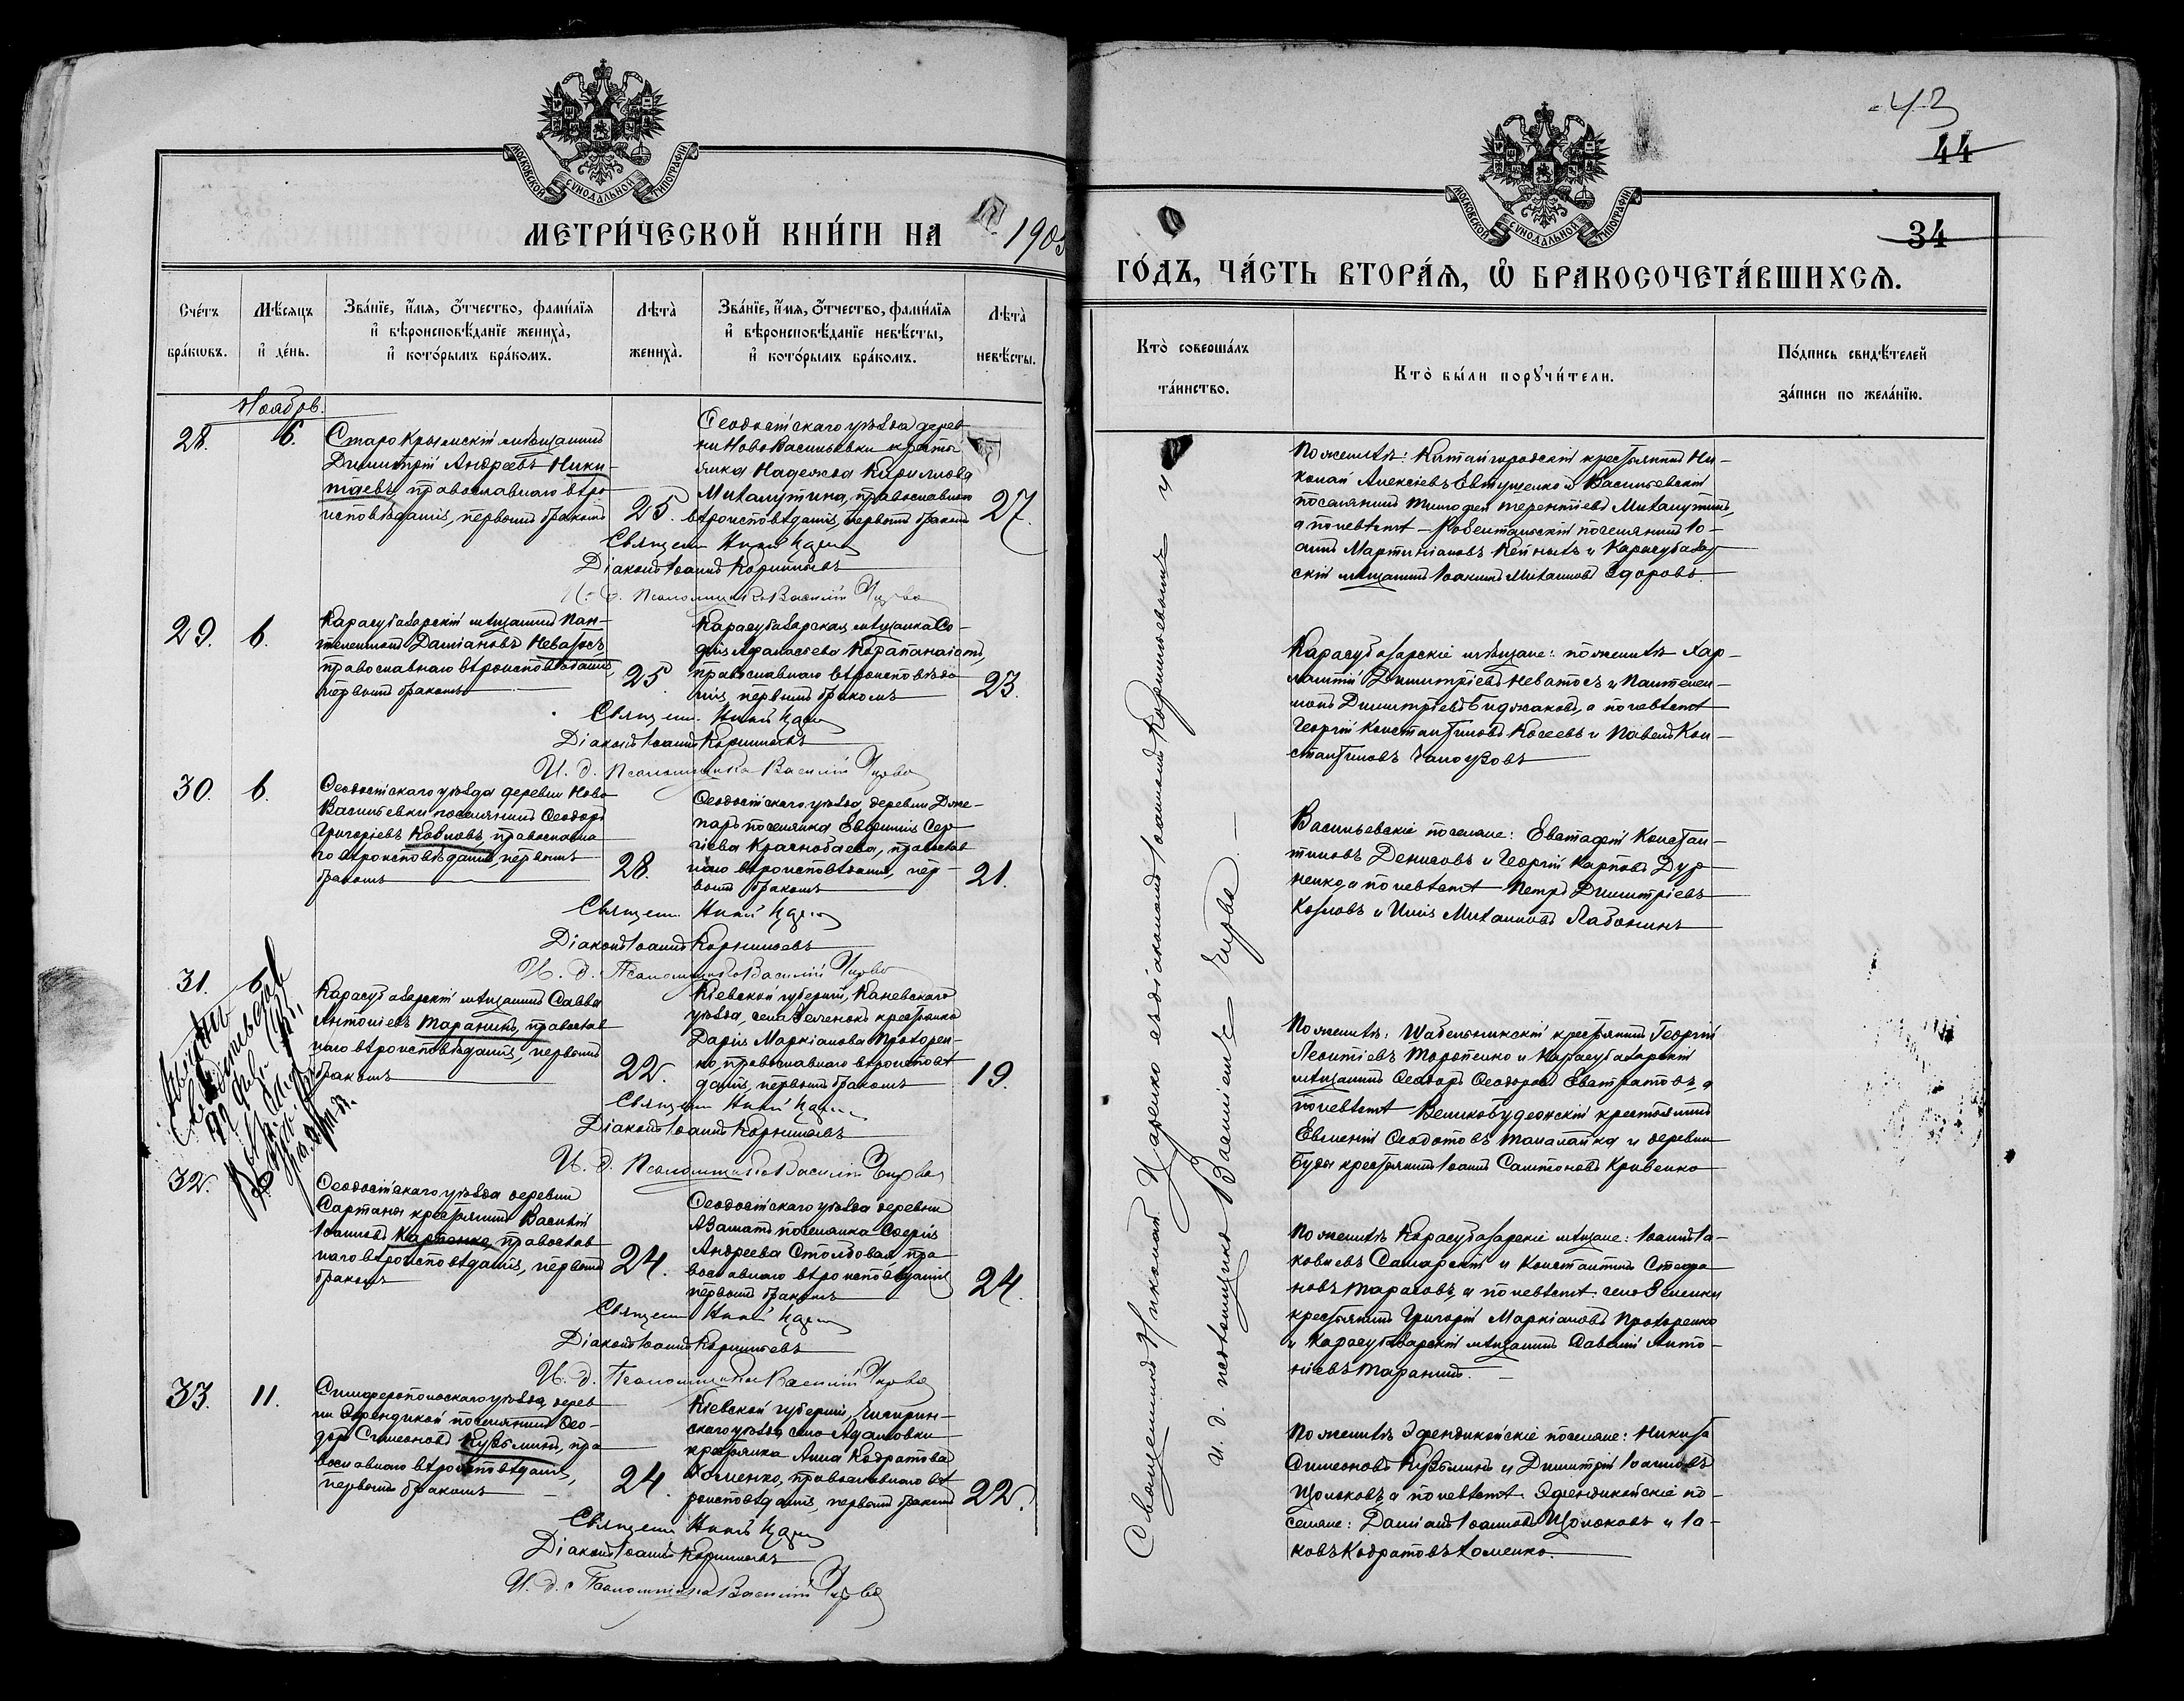 МОСКОВСКОЙ СУНОДАЛЬНОЙ ТИПОГРАФІИ
МЕТРИ́ЧЕСКОЙ КНИ́ГИ НА 1905
Сче́тъ бра́кѡвъ.
Мѣ́сяцъ и҆ де́нь.
Зва́нїе, и҆́мя, ѻ҆́тчество, фами́лїя
и҆ вѣроисповѣ́данїе жениха̀,
и҆ кото́рымъ бра́комъ.
Лѣта̀ жениха̀.
Зва́нїе, и҆́мя, ѻ҆́тчество, фами́лїя
и҆ вѣроисповѣ́данїе невѣ́сты,
и҆ кото́рымъ бра́комъ.
Лѣта̀ невѣ́сты.
Ноябрь.
28. 6.
Старо Крымскій мѣщанинъ
Димитрій Андреевъ Ники-
таевъ, православнаго вѣро
исповѣданія, первымъ бракомъ
25.
Ѳеодосійскаго уѣзда дерев
ни Ново Васильевки крестья
янка Надежда Кириллова
Михалутина, православнаго
вѣроисповѣданія, первымъ бракомъ
27.
Діаконъ Іоаннъ Корнильевъ
И. д. Псаломщика Василій Чирва
29. 6.
Карасубазарскій мѣщанинъ Пан-
телеимонъ Даміановъ Неватосъ,
православнаго вѣроисповѣданія,
первымъ бракомъ
25.
Карасубазарская мѣщанка Со-
фія Аѳанасьева
православнаго вѣроисповѣда
нія, первымъ бракомъ
23.
Діаконъ Іоаннъ Корнильевъ
И. д. Псаломщика Василій Чирва
30. 6.
Ѳеодосійскаго уѣзда деревни Ново
Васильевки поселянинъ Ѳеодоръ
Григорьевъ Козловъ, православна
го вѣроисповѣданія, первымъ
бракомъ
28.
Ѳеодосійскаго уѣзда, деревни
поселянка Евфимія Сер
гіева Краснобаева, православ
наго вѣроисповѣданія, пер-
вымъ бракомъ
21.
Діаконъ Іоаннъ Корнильевъ
И. д. Псаломщика Василій Чирва
31. 6.
Карасубазарскій мѣщанинъ Савва
Антоніевъ Таранинъ, православ
наго вѣроисповѣданія, первымъ
бракомъ
22.
Кіевской губерніи, Каневскаго
уѣзда, села Зеленокъ крестьянка
Дарія Маркіанова Прохорен-
ко, православнаго вѣроисповѣ
данія, первымъ бракомъ
19.
Діаконъ Іоаннъ Корнильевъ
И. д. Псаломщика Василій Чирва
32.
Ѳеодосійскаго уѣзда деревни
Сартана крестьянинъ Василій
Іоанновъ Карпенко, православ
наго вѣроисповѣданія, первымъ
бракомъ
24.
Ѳеодосійскаго уѣзда деревни
Азаматъ поселянка Софія
Андреева Столбовая, пра
вославнаго вѣроисповѣданія
первымъ бракомъ
24.
Діаконъ Іоаннъ Корнильевъ
И. д. Псаломщика Василій Чирва
33. 11.
Симферопольскаго уѣзда, дерев
ни Эфендикой поселянинъ Ѳео-
доръ Симеоновъ Кузьминъ, пра
вославнаго вѣроисповѣданія,
первымъ бракомъ
24.
Кіевской губерніи, Чигирин-
скаго уѣзда села Адамовки
крестьянка Анна Кодратова
Хоменко, православнаго вѣ
роисповѣданія, первымъ бракомъ
22.
Діаконъ Іоаннъ Корнильевъ
И. д. Псаломщика Василій Чирва
43
44
34
МОСКОВСКОЙ СУНОДАЛЬНОЙ ТИПОГРАФІИ
ГО́ДЪ, ЧА́СТЬ ВТОРА́Я, Ѡ҆ БРАКОСОЧЕТА́ВШИХСЯ.
Кто̀ соверша́лъ та́инство.
Кто̀ бы́ли порꙋчи́тели.
По́дпись свидѣ́телей за́писи по жела́нїю.
Священникъ Николай Царенко съ діакономъ Іоанномъ Корнильевымъ и
и. д. псаломщика Василіемъ Чирва.
По женихѣ: Китайгородскій крестьянинъ Ни-
колай Алексіевъ Евтушенко и Васильевскій
поселянинъ Тимофей Терентіевъ Михалутинъ,
а по невѣстѣ - поселянинъ Іо-
аннъ Мартиніановъ и Карасубазар
скій мѣщанинъ Іоакимъ Михаиловъ Ѳдоровъ.
Карасубазарскіе мѣщане: по женихѣ Хар-
лампій Димитріевъ Неватосъ и Пантелеи-
монъ Димитріевъ Биджаковъ, а по невѣстѣ
Георгій Константиновъ Косеевъ и Павелъ Кон-
стантиновъ
Васильевскіе поселяне: Евстафій Констан-
тиновъ Денисовъ и Георгій Карповъ Дур
ненко, а по невѣстѣ - Петръ Димитріевъ
Козловъ и Илія Михаиловъ Лабонинъ
По женихѣ: крестьянинъ Георгій
Леонтіевъ Торопенко и Карасубазарскій
мѣщанинъ Ѳеодоръ Ѳеодоровъ Евстратовъ, а
по невѣстѣ - крестьянинъ
Евгеній Ѳеодотовъ и деревни
Буды крестьянинъ Іоаннъ Сампсоновъ Кривенко
По женихѣ Карасубазарскіе мѣщане: Іоаннъ Іа-
ковлевъ Самарскій и Константинъ Стефа
новъ Тарасовъ, а по невѣстѣ села Зеленки
крестьянинъ Григорій Маркіановъ Прохоренко
и Карасубазарскій мѣщанинъ Савватій Анто-
ніевъ Таранинъ.
По женихѣ Эфендикойскіе поселяне: Никита
Симеоновъ Кузьминъ и Димитрій Іоанновъ
а по невѣстѣ: Эфендикойскіе по-
селяне: Даміанъ Іоанновъ и Іа-
ковъ Кодратовъ Хоменко.